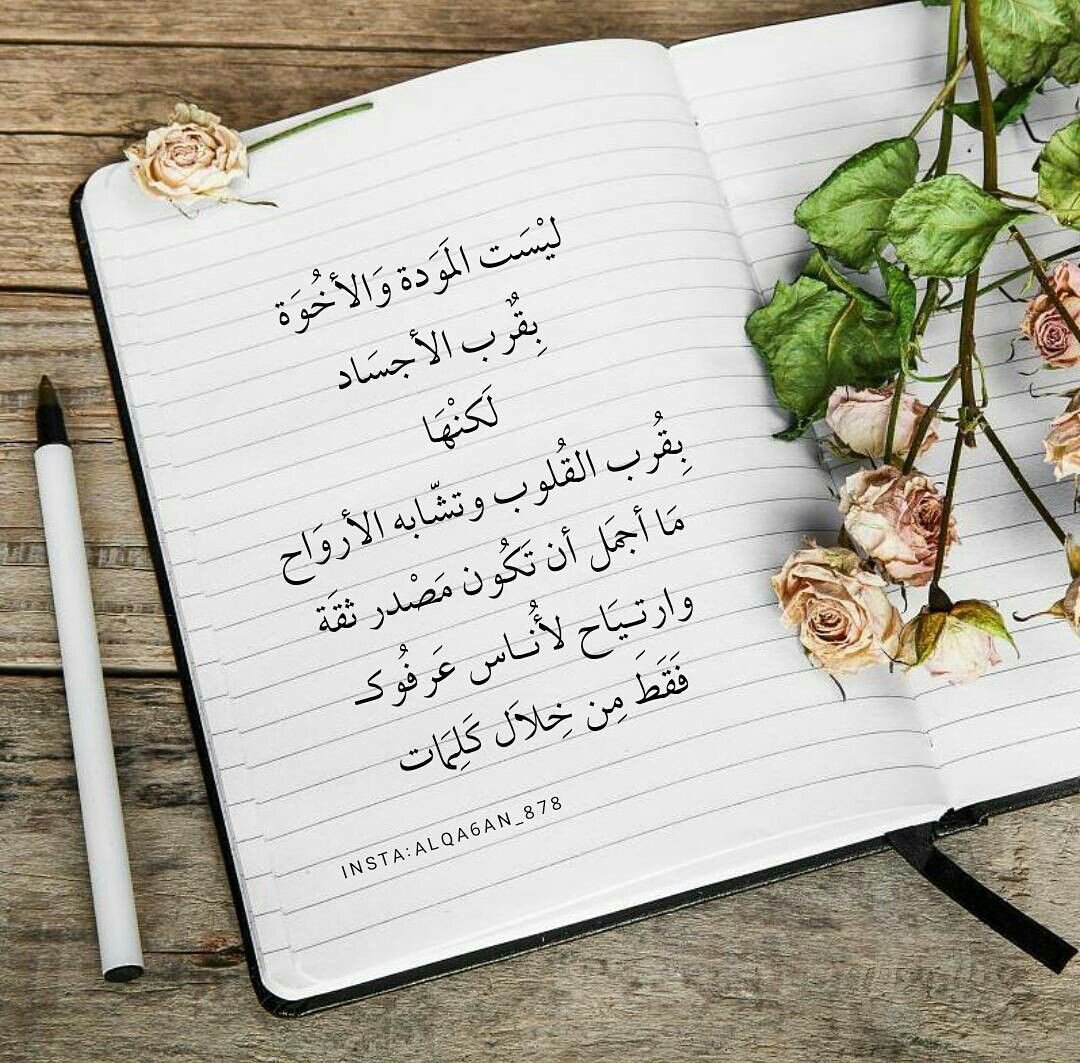 ليْسَت المَوَدة وَالأخُوَة
بِقٌرب الأجسَاد
لَكنْهَا
بِقُرب القُلوب وتشّابه الأروَاح
مَا أجمَل أن تَكُون مَصْدر ثقَة
وارتـيَاح لأُنـاس عَرفُوكـ
فَقَطَ مِن خِلاَل كَلِمَات
INSTA:ALQA6AN_878